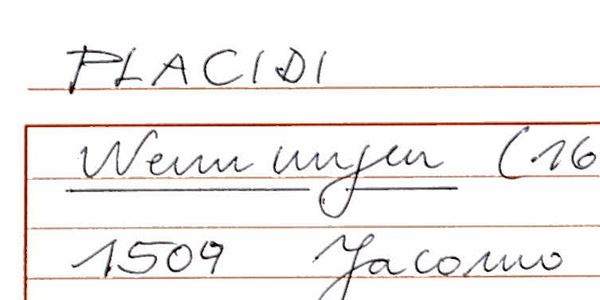 PLACIDI
Nennungen (16
1509 Jacomo